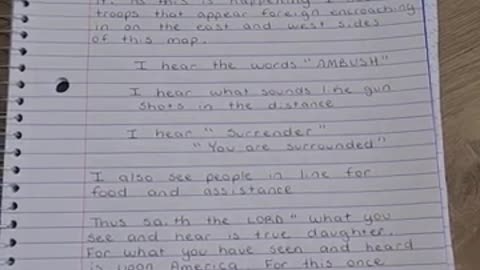 it. As this is happening I
troops that appear foreign encroaching
in on the east and west sides
of this map.
I hear the words "AMBUSH"
I hear what sounds like gun
shots in the distance
I hear "Surrender"
"You are surrounded"
I also see people in line for
food and assistance
Thus saith the LORD "what you
see and hear is true daughter.
For what you have seen and heard
is upon America. For this once